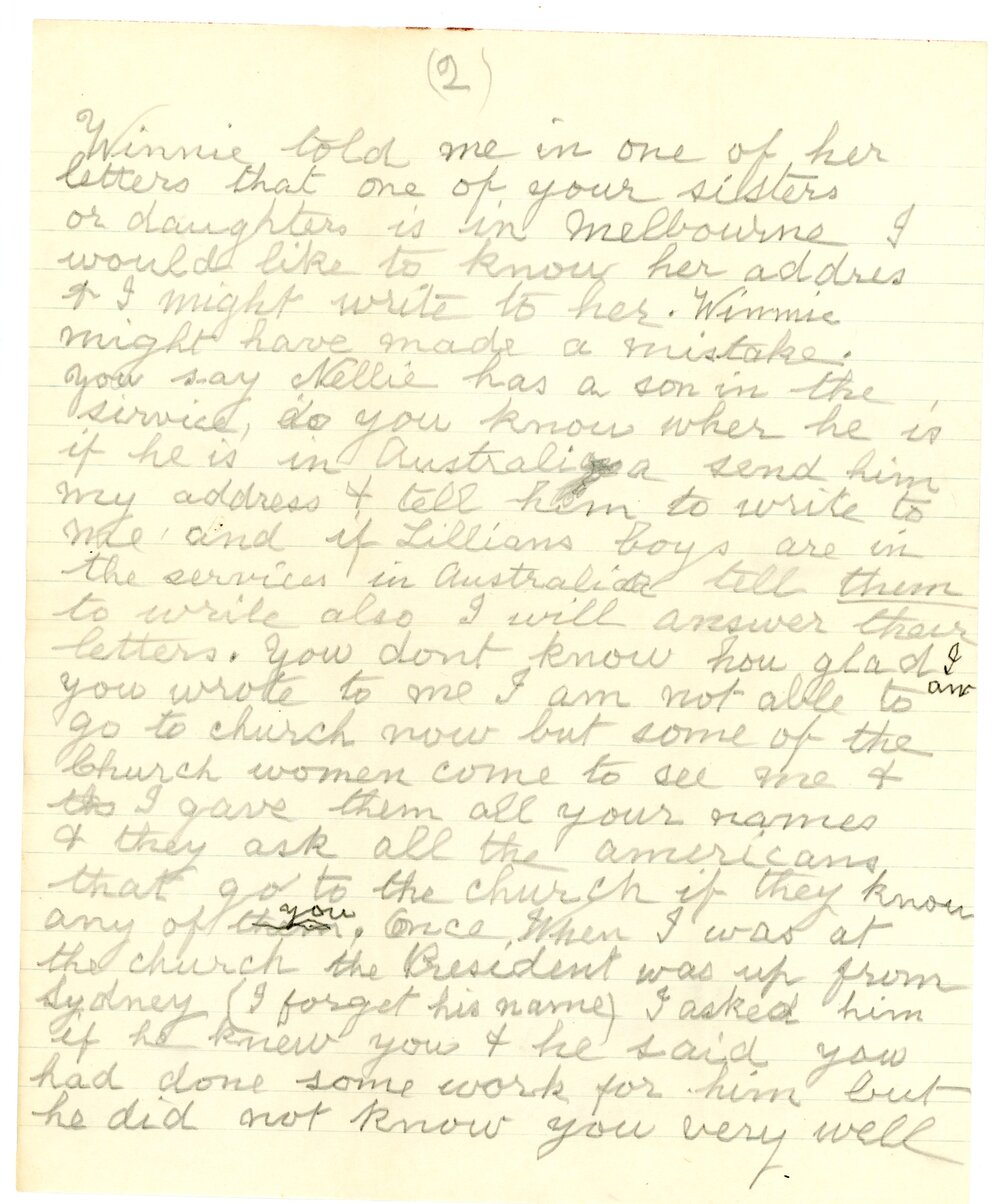 (2)
Winnie told me in one of her
letters that one of your sisters
or daughters is in Melbourne I
would like to know her addres
& I might write to her. Winnie
might have made a mistake.
You say Nellie has a son in the
sirvice, do you know wher he is
if he is in Australia send him
my address & tell him to write to
me and if Lillians boys are in
the services in Australia tell them
to write also I will answer their
letters. You dont know hou glad I am
you wrote to me I am not able to
go to church now but some of the
Church women come to see me &
tho I gave them all your names
& they ask all the americans
that go to the church if they know
any of them you. Once, When I was at
the church the President was up from
Sydney (I forget his name) I asked him
if he knew you & he said you
had done some work for him but
he did not know you very well